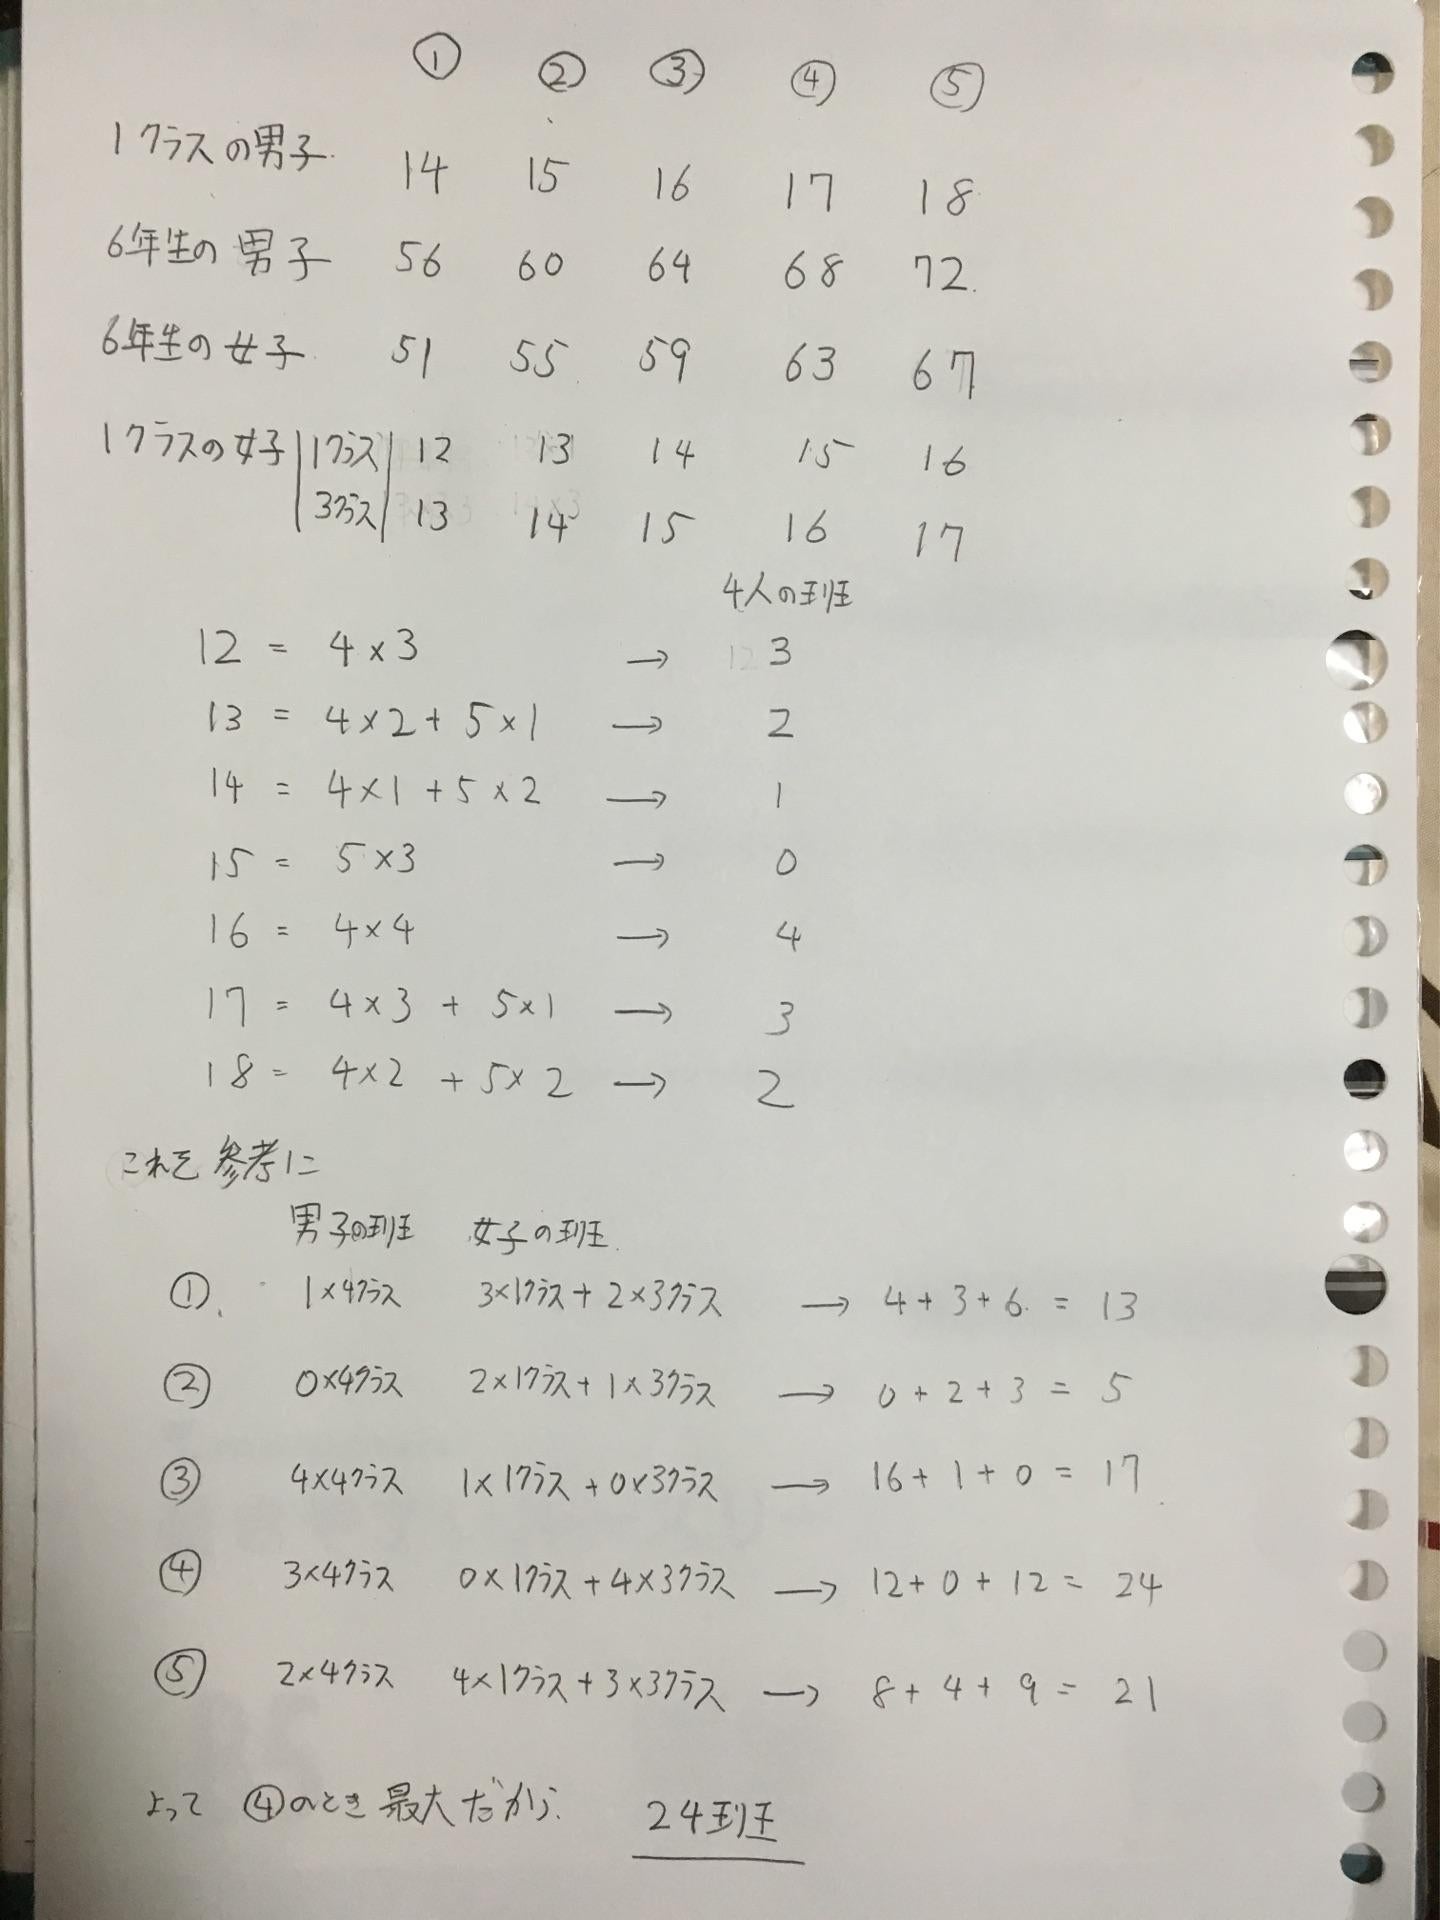 ① ② ③ ④ ⑤
1クラスの男子 14 15 16 17 18
6年生の男子 56 60 64 68 72
6年生の女子 51 55 59 63 67
1クラスの女子 | 1クラス | 12 13 14 15 16
| 3クラス | 13 14 15 16 17
4人の班
12 = 4×3 → 3
13 = 4×2+5×1 → 2
14 = 4×1+5×2 → 1
15 = 5×3 → 0
16 = 4×4 → 4
17 = 4×3+5×1 → 3
18 = 4×2+5×2 → 2
これを参考に
男子の班 女子の班
① 1×4クラス 3×1クラス+2×3クラス → 4+3+6 = 13
② 0×4クラス 2×1クラス+1×3クラス → 0+2+3 = 5
③ 4×4クラス 1×1クラス+0×3クラス → 16+1+0 = 17
④ 3×4クラス 0×1クラス+4×3クラス → 12+0+12 = 24
⑤ 2×4クラス 4×1クラス+3×3クラス → 8+4+9 = 21
よって ④のとき最大だから 24班